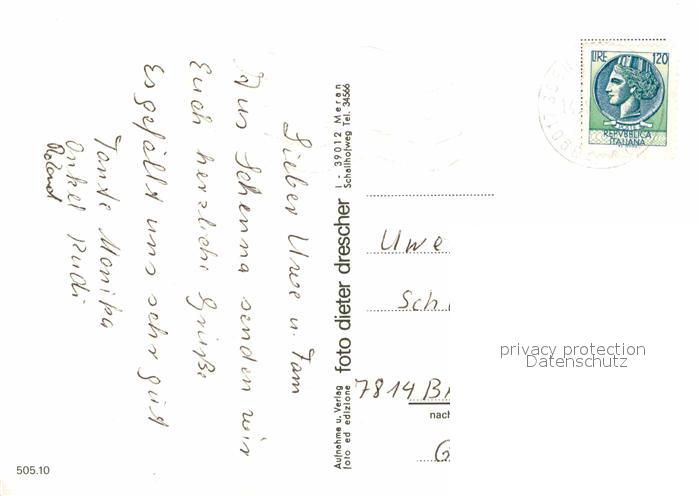 Lieber Uwe u. Fam
Aus Schenna senden wir
Euch herzliche Grüße
Es gefällt uns sehr gut
Tante Monika
Onkel Rudi
Roland
Aufnahme u. Verlag foto dieter drescher I - 39012 Meran
foto ed edizione Schallhofweg Tel. 34566
LIRE 120
REPVBBLICA
ITALIANA
Uwe
Sch
7814 B
nach
G
privacy protection
Datenschutz
505.10